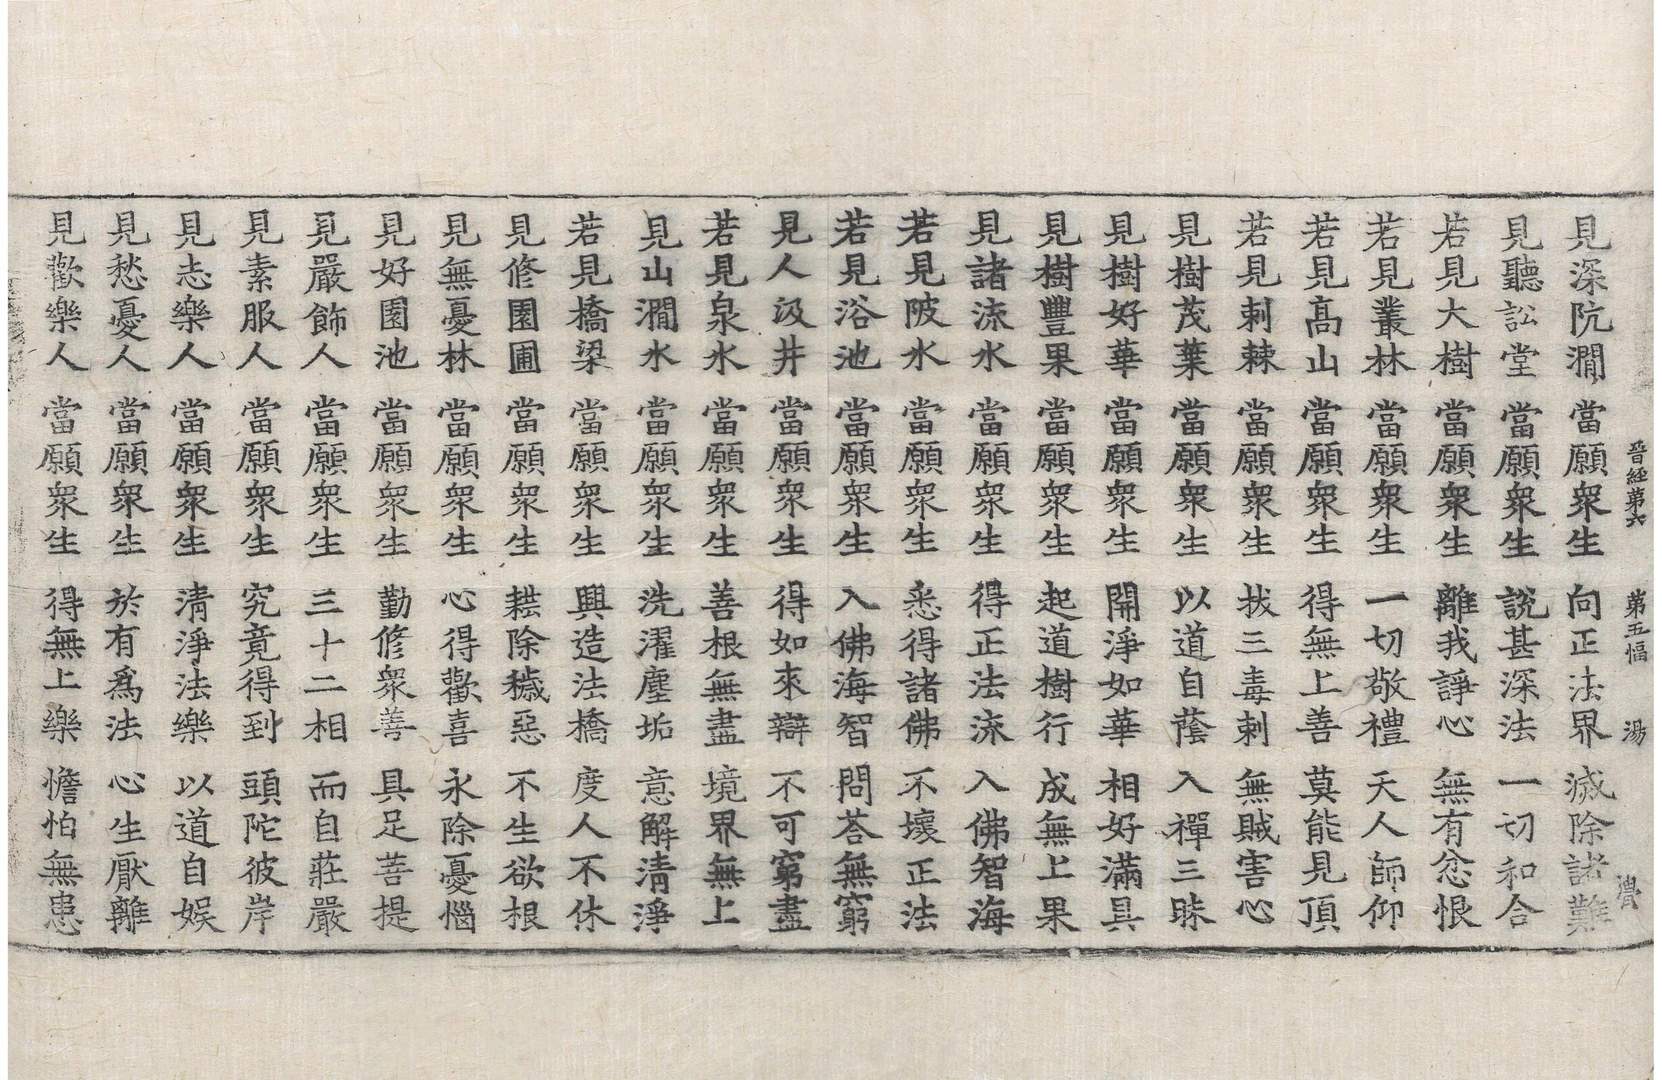 晉經第六 第五幅 湯 漕
見深阬澗 當願衆生 向正法界 滅除諸難
見聽訟堂 當願衆生 說甚深法 一切和合
若見大樹 當願衆生 離我諍心 無有忿恨
若見叢林 當願衆生 一切敬禮 天人師仰
若見高山 當願衆生 得無上善 莫能見頂
若見刺棘 當願衆生 拔三毒刺 無賊害心
見樹茂葉 當願衆生 以道自蔭 入禪三昧
見樹好華 當願衆生 開淨如華 相好滿具
見樹豐果 當願衆生 起道樹行 成無上果
見諸流水 當願衆生 得正法流 入佛智海
若見陂水 當願衆生 悉得諸佛 不壞正法
若見浴池 當願衆生 入佛海智 問荅無窮
見人汲井 當願衆生 得如來辯 不可窮盡
若見泉水 當願衆生 善根無盡 境界無上
見山澗水 當願衆生 洗濯塵垢 意解清淨
若見橋梁 當願衆生 興造法橋 度人不休
見修園圃 當願衆生 耘除穢惡 不生欲根
見無憂林 當願衆生 心得歡喜 永除憂惱
見好園池 當願衆生 勤修衆善 具足菩提
見嚴飾人 當願衆生 三十二相 而自莊嚴
見素服人 當願衆生 究竟得到 頭陀彼岸
見志樂人 當願衆生 清淨法樂 以道自娛
見愁憂人 當願衆生 於有爲法 心生厭離
見歡樂人 當願衆生 得無上樂 憺怕無患